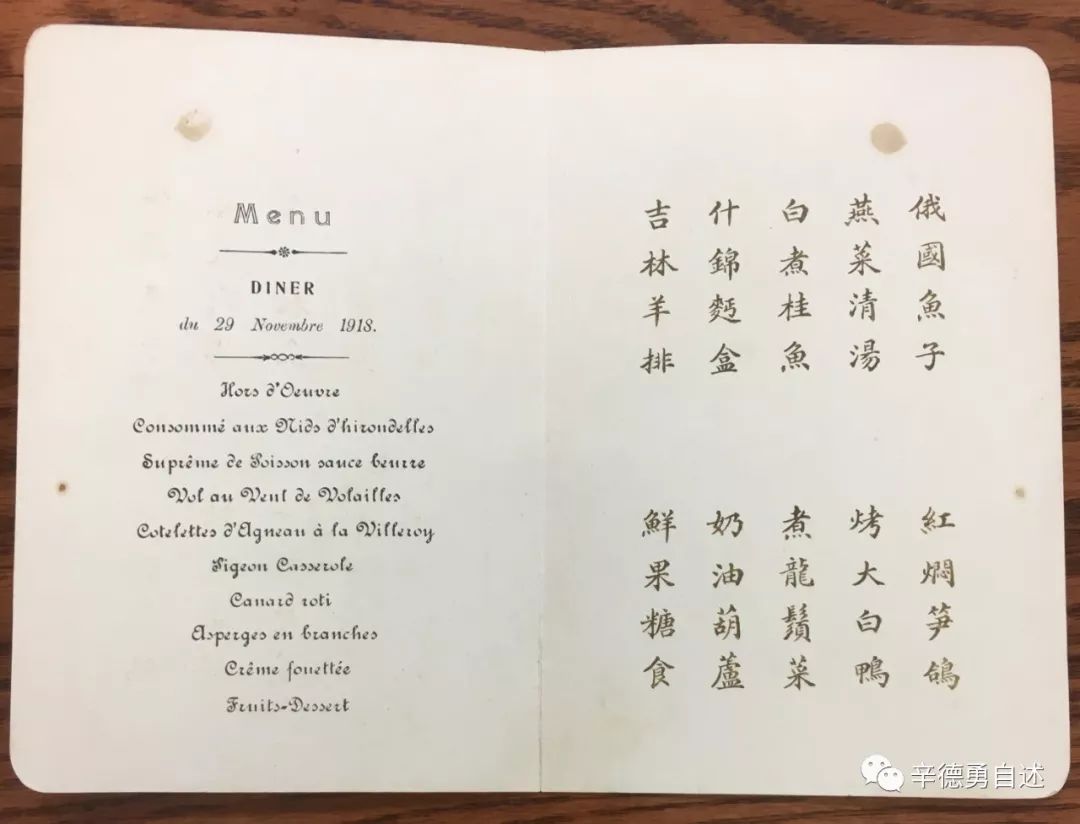 Menu
DINER
du 29 Novembre 1918.
Hors d'Oeuvre
Consommé aux Nids d'hirondelles
Suprême de Poisson sauce beurre
Vol au Vent de Volailles
Cotelettes d'Agneau à la Villeroy
Pigeon Casserole
Canard roti
Asperges en branches
Crême fouettée
Fruits-Dessert
俄國魚子
燕菜清湯
白煮桂魚
什錦麪盒
吉林羊排
紅燜笋鴿
烤大白鴨
煮龍鬚菜
奶油葫蘆
鮮果糖食
辛德勇自述